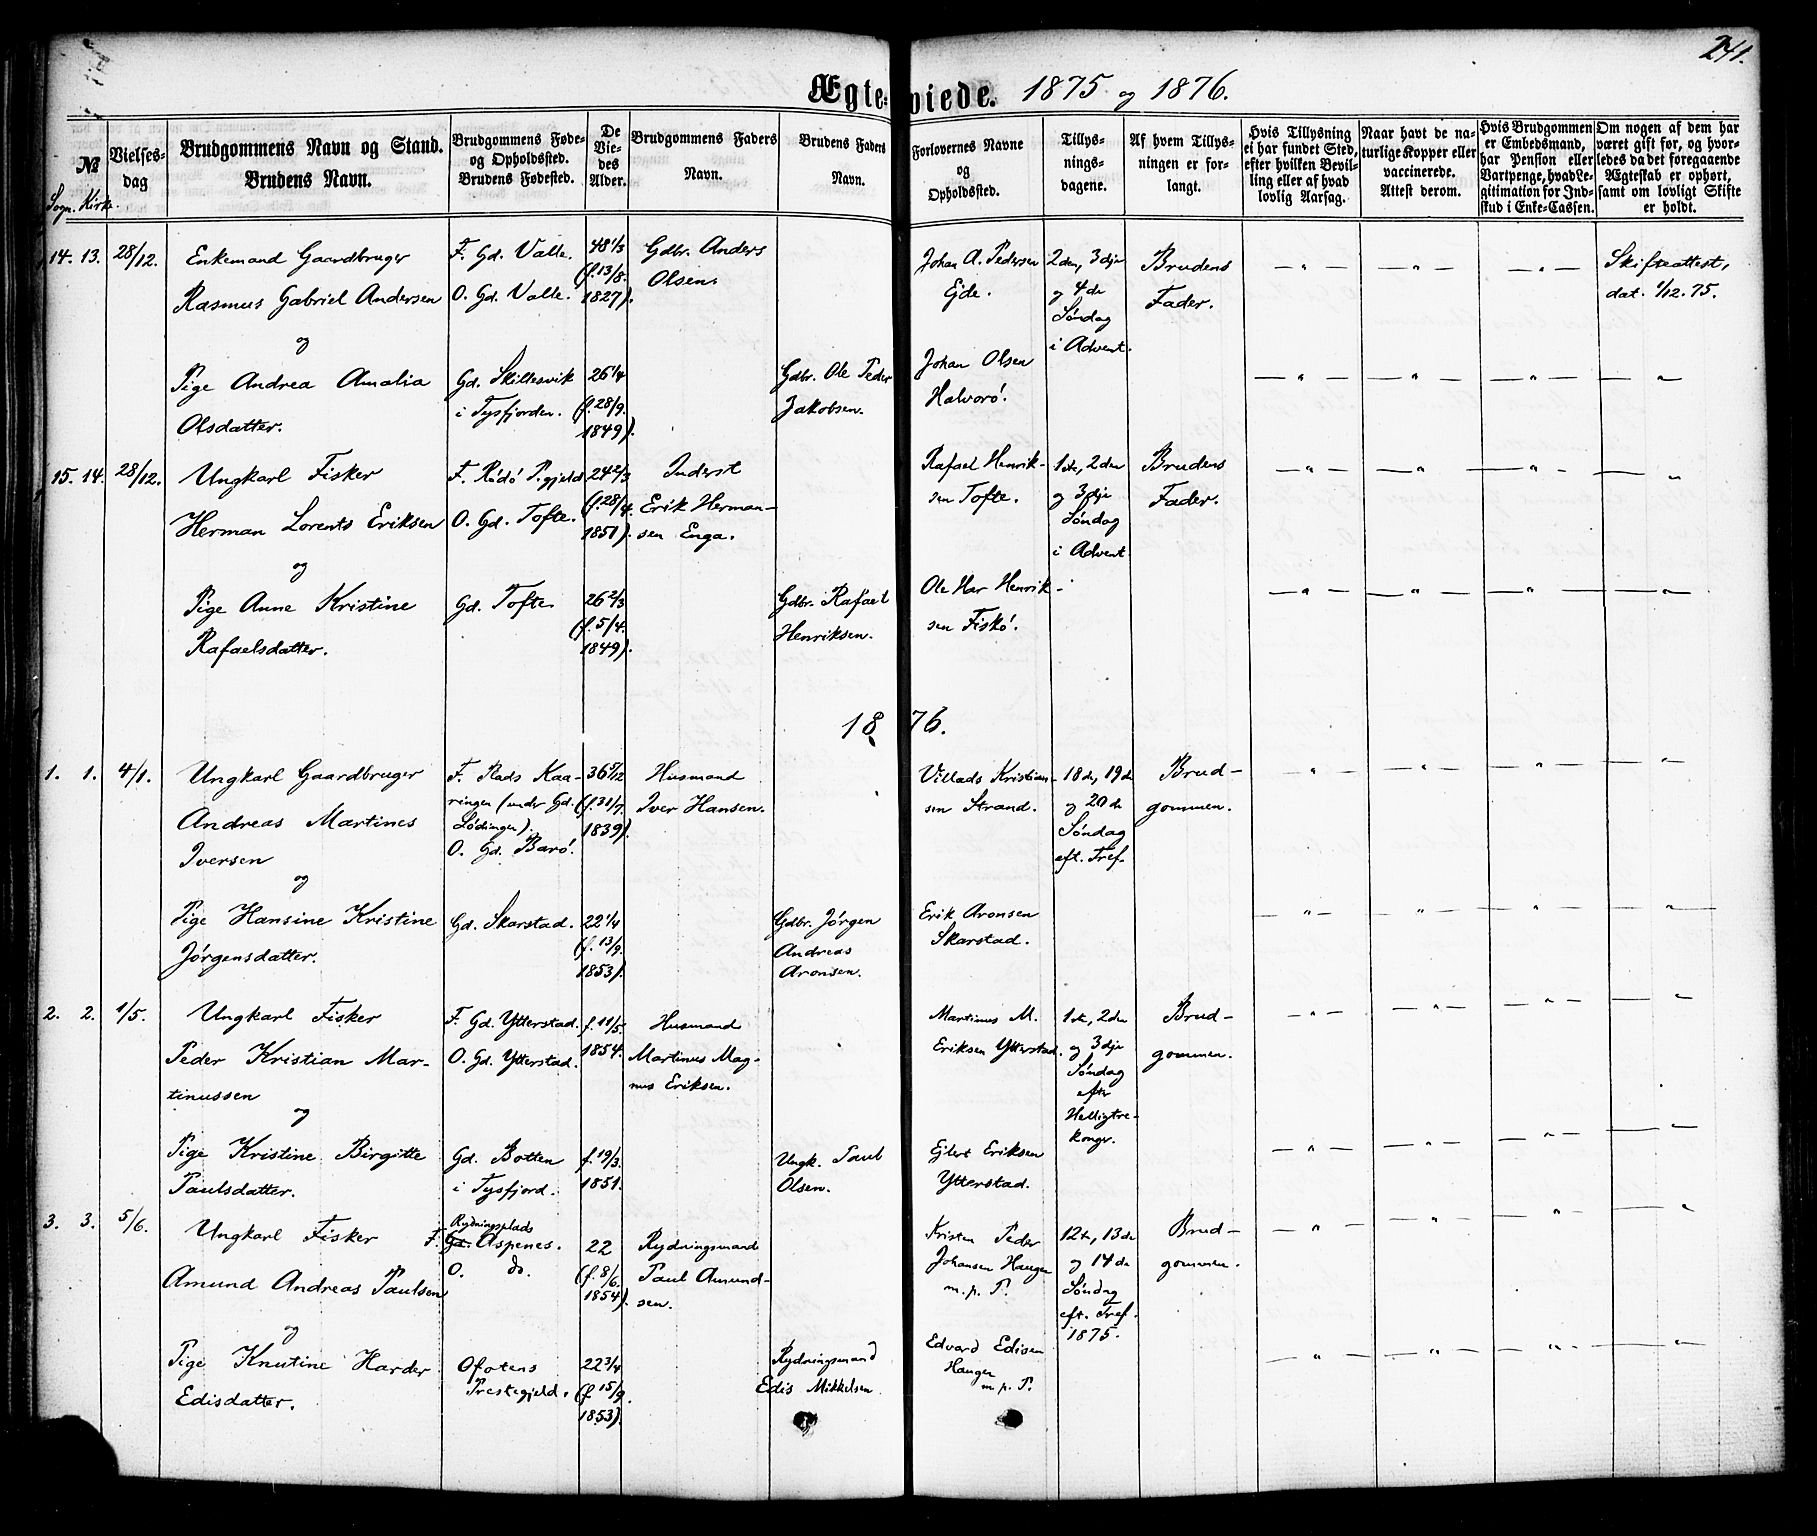 241.
Ægteviede. 1875 og 1876.
№
Sogn. Kirke.
Vielses-
dag
Brudgommens Navn og Stand.
Brudens Navn.
Brudgommens Føde-
og Opholdssted.
Brudens Fødested.
De
Vie-
des
Alder.
Brudgommens Faders
Navn.
Brudens Faders
Navn.
Forlovernes Navne
og
Opholdssted.
Tillys-
nings-
dagene.
Af hvem Tillys-
ningen er for-
langt.
Hvis Tillysning
ei har fundet Sted,
efter hvilken Bevil-
ling eller af hvad
lovlig Aarsag.
Naar havt de na-
turlige Kopper eller
vaccinerede.
Attest derom.
Hvis Brudgommen
er Embedsmand,
har Pension eller
Vartpenge, hvad Le-
gitimation for Ind-
skud i Enke-Cassen.
Om nogen af dem har
været gift før, og hvor-
ledes da det foregaaende
Ægteskab er ophørt,
samt om lovligt Skifte
er holdt.
14. 13. 28/12.
Enkemand Gaardbruger
Rasmus Gabriel Andersen
og
Pige Andrea Amalia
Olsdatter.
F. Gd. Valle.
O. Gd. Valle.
Gd. Skillesvik
i Tysfjorden.
48 1/3
(f. 13/8.
1827).
26 1/4
(f. 28/9.
1849).
Gdbr. Anders
Olsen.
Gdbr. Ole Peder
Jakobsen.
Johan A. Pedersen
Ejde.
Johan Olsen
Halvorö.
2den, 3dje
og 4de
Söndag
i Advent.
Brudens
Fader.
— " — — " — — " —
Skifteattest,
dat. 1/12. 75.
— " — — " — — " — — " —
15. 14. 28/12.
Ungkarl Fisker
Herman Lorents Eriksen
og
Pige Anne Kristine
Rafaelsdatter.
F. Rödö P.gjeld
O. Gd. Tofte.
Gd. Tofte.
24 2/3
(f. 28/4.
1851).
26 2/3
(f. 5/4.
1849).
Inderst
Erik Herman-
sen Enga.
Gdbr. Rafael
Henriksen.
Rafael Henrik-
sen Tofte.
Ole Har Henrik-
sen Fiskö.
1ste, 2den
og 3dje
Söndag
i Advent
Brudens
Fader.
— " — — " — — " — — " —
— " — — " — — " — — " —
1876.
1. 1. 4/1.
Ungkarl Gaardbruger
Andreas Martines
Iversen
og
Pige Hansine Kristine
Jörgensdatter.
F. Plads Kaa-
ringen (under Gd.
Lödingen).
O. Gd. Barö.
Gd. Skarstad.
36 5/12
(f. 31/7.
1839).
22 1/4
(f. 13/9.
1853).
Husmand
Iver Hansen.
Gdbr. Jörgen
Andreas
Aronsen.
Villads Kristian-
sen Strand.
Erik Aronsen
Skarstad.
18de, 19de
og 20de
Söndag
eft. Tref.
Brud-
gommen.
— " — — " — — " — — " —
— " — — " — — " — — " —
2. 2. 1/5.
Ungkarl Fisker
Peder Kristian Mar-
tinussen
og
Pige Kristine Birgitte
Paulsdatter.
F. Gd. Ytterstad.
O. Gd. Ytterstad.
Gd. Botten
i Tysfjord.
f. 11/5.
1854.
f. 19/3.
1851.
Husmand
Martinus Mag-
nus Eriksen.
Ungk. Paul
Olsen.
Martinus M.
Eriksen Ytterstad.
Ejlert Eriksen
Ytterstad.
1ste, 2den
og 3dje
Söndag
efter
Helligtre-
konger.
Brud-
gommen.
— " — — " — — " — — " —
— " — — " — — " — — " —
3. 3. 5/6.
Ungkarl Fisker
Amund Andreas Paulsen
og
Pige Knutine Harder
Edisdatter.
Rydningsplads
F. Gd. Aspenes.
O. do.
Ofotens
Præstegjeld.
22
(f. 8/6.
1854).
22 3/4
(f. 15/9.
1853).
Rydningsmand
Paul Amund-
sen.
Rydningsmand
Edis Mikkelsen.
Kristen Peder
Johansen Haugen
m. p. P.
Edvard Edisen
Haugen
m. p. P.
12te, 13de
og 14de
Söndag
eft. Tref.
1875.
Brud-
gommen.
— " — — " — — " — — " —
— " — — " — — " — — " —